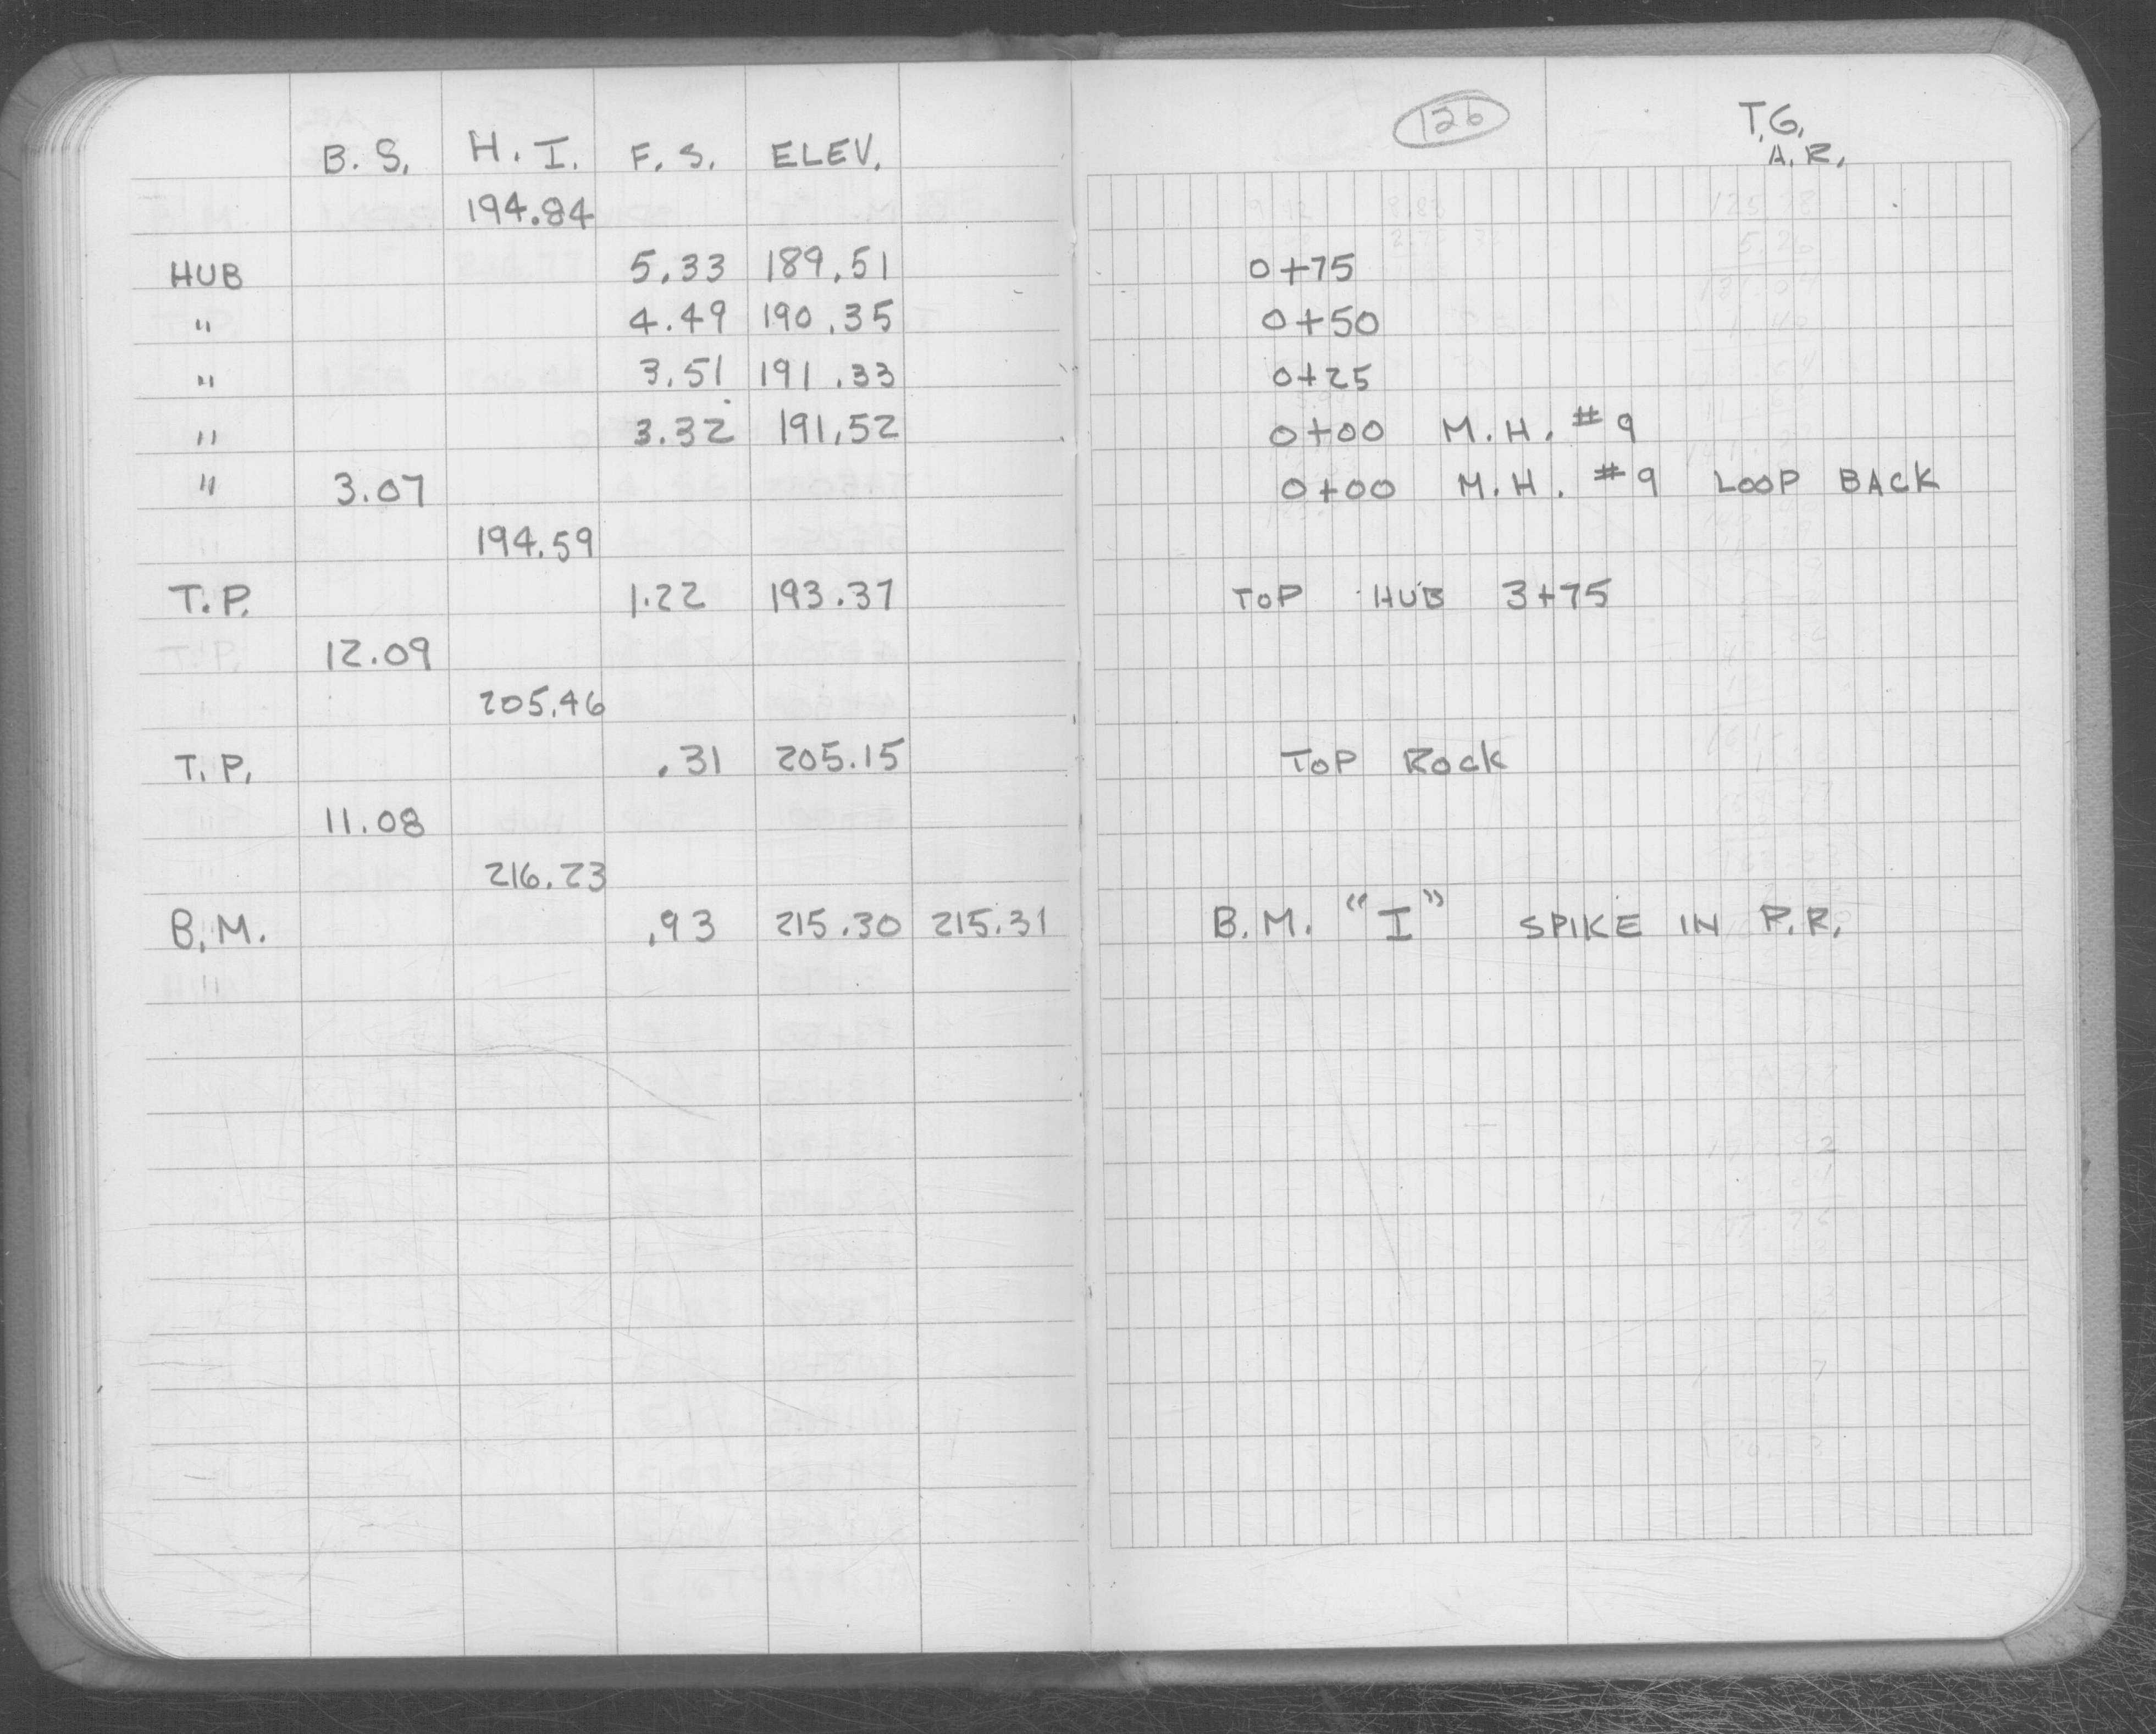 126
T.G.
A.R.
B.S. H.I. F.S. ELEV.
194.84
HUB 5.33 189.51 0+75
" 4.49 190.35 0+50
" 3.51 191.33 0+25
" 3.32 191.52 0+00 M.H. #9
" 3.07 0+00 M.H. #9 LOOP BACK
194.59
T.P. 1.22 193.37 TOP HUB 3+75
12.09
205.46
T.P. .31 205.15 TOP ROCK
11.08
216.23
B.M. .93 215.30 215.31 B.M. "I" SPIKE IN P.R.